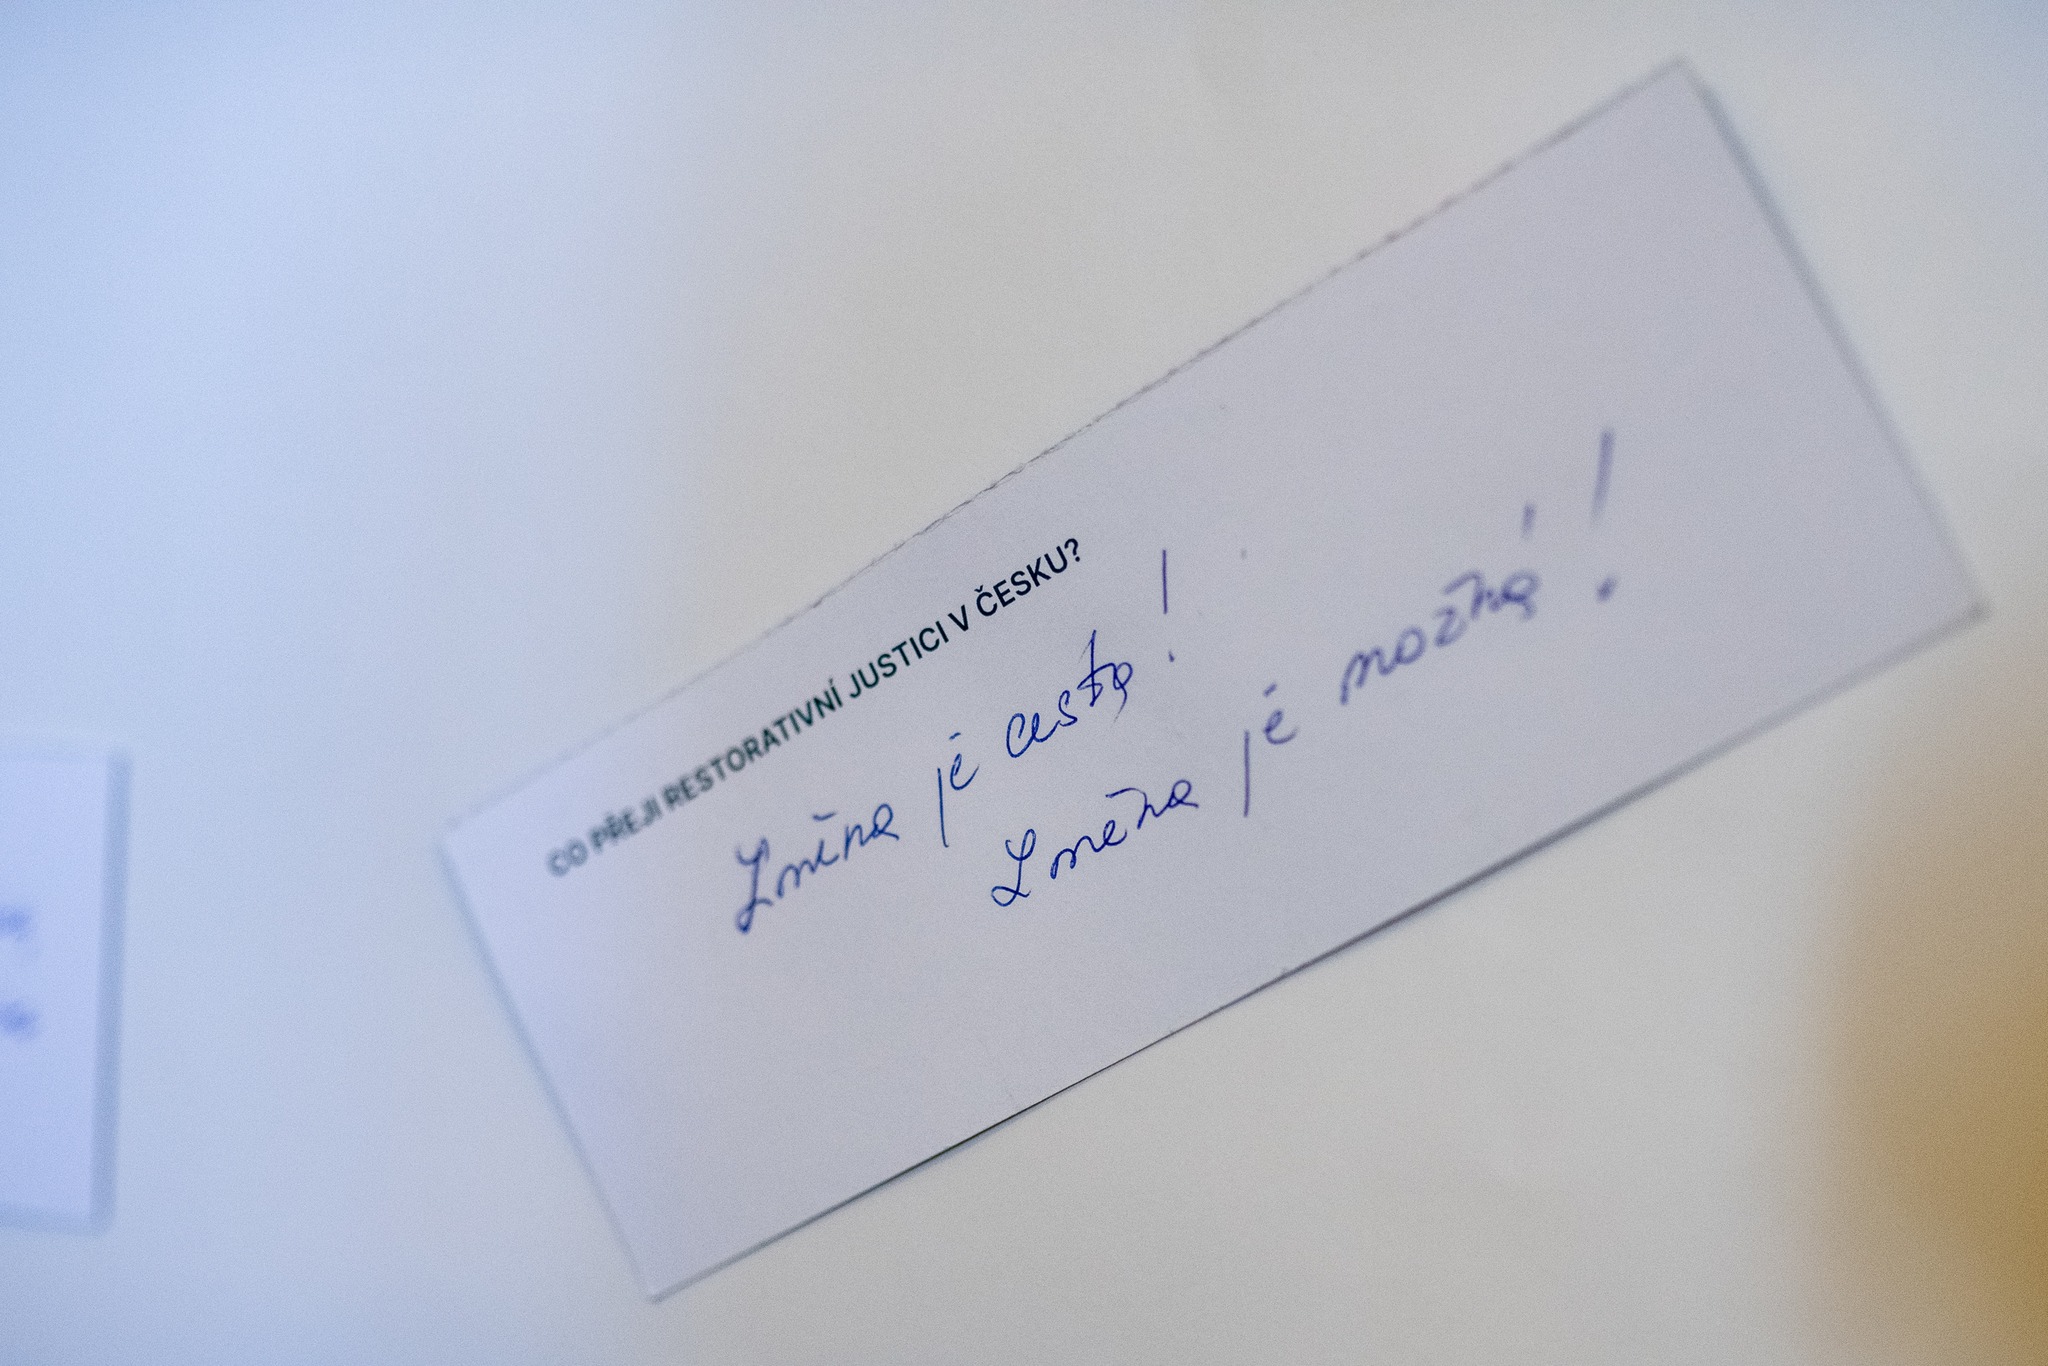 CO PŘEJI RESTORATIVNÍ JUSTICI V ČESKU?
Změna je cesta!
Změna je možná!